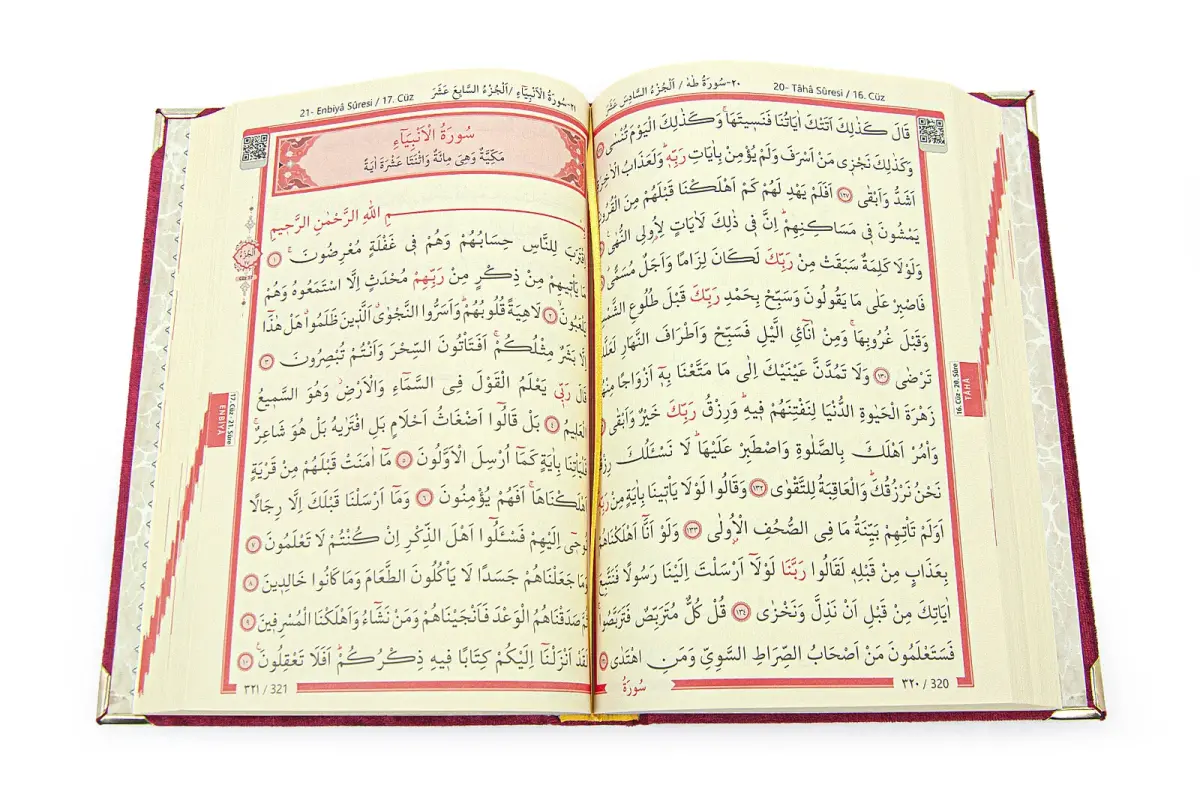 20- Tâhâ Sûresi / 16. Cüz
٢٠-سُورَةُ طٰهٰ / اَلْجُزْءُ السَّادِسَ عَشَرَ
قَالَ كَذٰلِكَ اَتَتْكَ اٰيَاتُنَا فَنَسِيتَهَاۚ وَكَذٰلِكَ الْيَوْمَ تُنْسٰى
وَكَذٰلِكَ نَجْزٖي مَنْ اَسْرَفَ وَلَمْ يُؤْمِنْ بِاٰيَاتِ رَبِّهٖؕ وَلَعَذَابُ الْاٰخِرَةِ
اَشَدُّ وَاَبْقٰى ﴿١٢٧﴾ اَفَلَمْ يَهْدِ لَهُمْ كَمْ اَهْلَكْنَا قَبْلَهُمْ مِنَ الْقُرُونِ
يَمْشُونَ فٖي مَسَاكِنِهِمْؕ اِنَّ فٖي ذٰلِكَ لَاٰيَاتٍ لِاُولِي النُّهٰى
وَلَوْلَا كَلِمَةٌ سَبَقَتْ مِنْ رَبِّكَ لَكَانَ لِزَامًا وَاَجَلٌ مُسَمًّى
فَاصْبِرْ عَلٰى مَا يَقُولُونَ وَسَبِّحْ بِحَمْدِ رَبِّكَ قَبْلَ طُلُوعِ الشَّمْسِ
وَقَبْلَ غُرُوبِهَاۚ وَمِنْ اٰنَآئِ الَّيْلِ فَسَبِّحْ وَاَطْرَافَ النَّهَارِ لَعَلَّكَ
تَرْضٰى ﴿١٣٠﴾ وَلَا تَمُدَّنَّ عَيْنَيْكَ اِلٰى مَا مَتَّعْنَا بِهٖٓ اَزْوَاجًا مِنْهُمْ
زَهْرَةَ الْحَيٰوةِ الدُّنْيَا لِنَفْتِنَهُمْ فٖيهِؕ وَرِزْقُ رَبِّكَ خَيْرٌ وَاَبْقٰى
وَأْمُرْ اَهْلَكَ بِالصَّلٰوةِ وَاصْطَبِرْ عَلَيْهَاؕ لَا نَسْـَٔلُكَ رِزْقًا
نَحْنُ نَرْزُقُكَؕ وَالْعَاقِبَةُ لِلتَّقْوٰى ﴿١٣٢﴾ وَقَالُوا لَوْلَا يَأْتٖينَا بِاٰيَةٍ مِنْ رَبِّهٖ
اَوَلَمْ تَأْتِهِمْ بَيِّنَةُ مَا فِي الصُّحُفِ الْاُولٰى ﴿١٣٣﴾ وَلَوْ اَنَّٓا اَهْلَكْنَاهُمْ
بِعَذَابٍ مِنْ قَبْلِهٖ لَقَالُوا رَبَّنَا لَوْلَٓا اَرْسَلْتَ اِلَيْنَا رَسُولًا فَنَتَّبِعَ
اٰيَاتِكَ مِنْ قَبْلِ اَنْ نَذِلَّ وَنَخْزٰى ﴿١٣٤﴾ قُلْ كُلٌّ مُتَرَبِّصٌ فَتَرَبَّصُواۚ
فَسَتَعْلَمُونَ مَنْ اَصْحَابُ الصِّرَاطِ السَّوِيِّ وَمَنِ اهْتَدٰى
٣٢٠ / 320
سُورَةُ
16. Cüz - 20. Sûre
TÂHÂ
21- Enbiyâ Sûresi / 17. Cüz
٢١-سُورَةُ الْاَنْبِيَٓاءِ / اَلْجُزْءُ السَّابِعَ عَشَرَ
سُورَةُ الْاَنْبِيَٓاءِ
مَكِّيَّةٌ وَهِيَ مِائَةٌ وَاثْنَتَا عَشْرَةَ اٰيَةً
ـمِ اللّٰهِ الرَّحْمٰنِ الرَّحٖيمِ
اِقْتَرَبَ لِلنَّاسِ حِسَابُهُمْ وَهُمْ فٖي غَفْلَةٍ مُعْرِضُونَۚ ﴿١﴾
مَا يَأْتٖيهِمْ مِنْ ذِكْرٍ مِنْ رَبِّهِمْ مُحْدَثٍ اِلَّا اسْتَمَعُوهُ وَهُمْ
يَلْعَبُونَۙ ﴿٢﴾ لَاهِيَةً قُلُوبُهُمْؕ وَاَسَرُّوا النَّجْوٰىۗ اَلَّذٖينَ ظَلَمُواۗ هَلْ هٰذَٓا
اِلَّا بَشَرٌ مِثْلُكُمْۚ اَفَتَأْتُونَ السِّحْرَ وَاَنْتُمْ تُبْصِرُونَ ﴿٣﴾
قَالَ رَبّٖي يَعْلَمُ الْقَوْلَ فِي السَّمَٓاءِ وَالْاَرْضِؗ وَهُوَ السَّمٖيعُ
الْعَلٖيمُ ﴿٤﴾ بَلْ قَالُٓوا اَضْغَاثُ اَحْلَامٍ بَلِ افْتَرٰيهُ بَلْ هُوَ شَاعِرٌۚ
فَلْيَأْتِنَا بِاٰيَةٍ كَمَٓا اُرْسِلَ الْاَوَّلُونَ ﴿٥﴾ مَٓا اٰمَنَتْ قَبْلَهُمْ مِنْ قَرْيَةٍ
اَهْلَكْنَاهَاۚ اَفَهُمْ يُؤْمِنُونَ ﴿٦﴾ وَمَٓا اَرْسَلْنَا قَبْلَكَ اِلَّا رِجَالًا
نُوحٖٓي اِلَيْهِمْ فَسْـَٔلُٓوا اَهْلَ الذِّكْرِ اِنْ كُنْتُمْ لَا تَعْلَمُونَ ﴿٧﴾
وَمَا جَعَلْنَاهُمْ جَسَدًا لَا يَأْكُلُونَ الطَّعَامَ وَمَا كَانُوا خَالِدٖينَ ﴿٨﴾
ثُمَّ صَدَقْنَاهُمُ الْوَعْدَ فَاَنْجَيْنَاهُمْ وَمَنْ نَشَٓاءُ وَاَهْلَكْنَا الْمُسْرِفٖينَ ﴿٩﴾
لَقَدْ اَنْزَلْنَٓا اِلَيْكُمْ كِتَابًا فٖيهِ ذِكْرُكُمْؕ اَفَلَا تَعْقِلُونَۚ ﴿١٠﴾
٣٢١ / 321
اَلْجُزْءُ
17. Cüz - 21. Sûre
ENBİYÂ